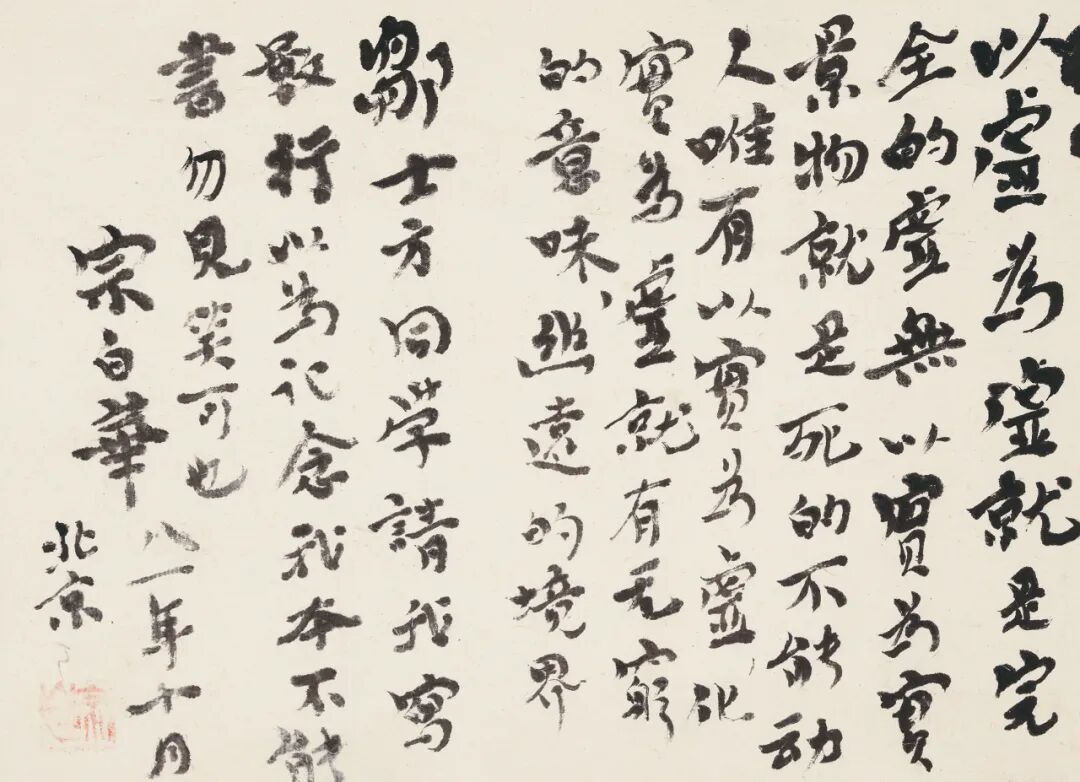 以虚為虚就是完
全的虚無以實為實
景物就是死的不能动
人唯有以實為虚,化
實為虚就有无窮
的意味,幽遠的境界
鄒士方同学請我寫
数行以為记念我本不能
書勿見笑可也
宗白華
八一年十月
北京